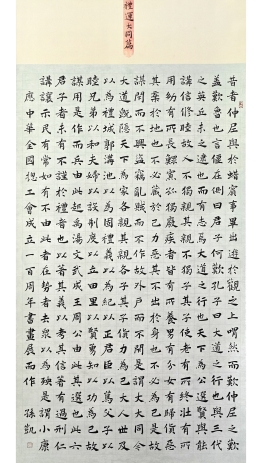 禮運大同篇
昔者仲尼與於蜡賓事畢出遊於觀之上喟然而歎仲尼之歎
蓋歎魯也言偃在側曰君子何歎孔子曰大道之行也與三代
之英丘未之逮也而有志焉大道之行也天下為公選賢與能
講信修睦故人不獨親其親不獨子其子使老有所終壯有所
用幼有所長鰥寡孤獨廢疾者皆有所養男有分女有歸貨惡
其棄於地也不必藏於己力惡其不出於身也不必為己是故
謀閉而不興盜竊亂賊而不作故外戶而不閉是謂大同今
大道既隱天下為家各親其親各子其子貨力為己大人世及
以為禮城郭溝池以為固禮義以為紀以正君臣以篤父子以
睦兄弟以和夫婦以設制度以立田里以賢勇知以功為己故
謀用是作而兵由此起禹湯文武成王周公由此其選也此六
君子者未有不謹於禮者也以著其義以考其信著有過刑仁
講讓示民有常如有不由此者在勢者去眾以為殃是謂小康
應中華全國揔工會成立一百周年書畫展而作 孫凱